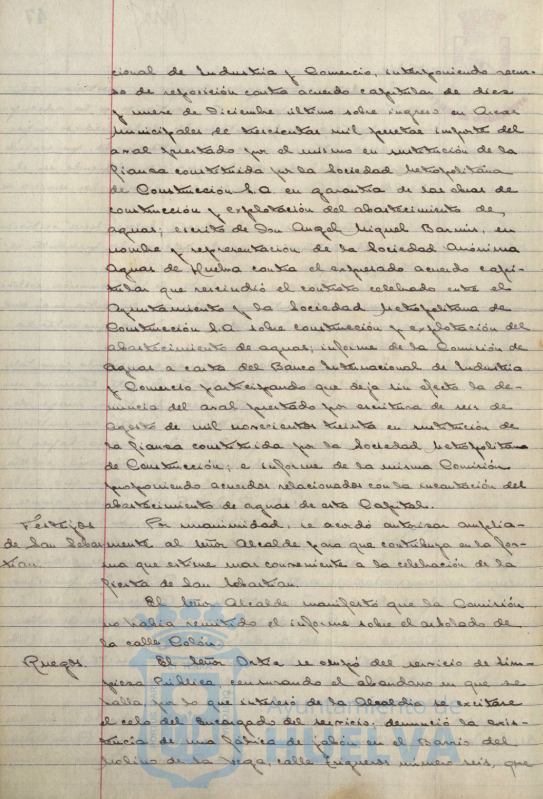 cional de Industria y Comercio, interponiendo recur-
so de reposición contra acuerdo capitular de diez
y nueve de Diciembre último sobre ingreso en Arcas
Municipales de trescientas mil pesetas importe del
aval prestado por el mismo en sustitución de la
fianza constituida por la Sociedad Metropolitana
de Construcción S.A. en garantía de las obras de
construcción y explotación del abastecimiento de
aguas; escrito de Don Angel Miguel en
nombre y representación de la Sociedad Anónima
Aguas de Huelva contra el expresado acuerdo capi-
tular que rescindió el contrato celebrado entre el
Ayuntamiento y la Sociedad Metropolitana de
Construcción S.A. sobre construcción y explotación del
abastecimiento de aguas; informe de la Comisión de
Aguas a carta del Banco Internacional de Industria
y Comercio participando que deja sin efecto la de-
nuncia del aval prestado por escritura de seis de
Agosto de mil novecientos treinta en sustitución de
la fianza constituida por la Sociedad Metropolitana
de Construcción; e informe de la misma Comisión
proponiendo acuerdos relacionados con la incautación del
abastecimiento de aguas de esta Capital.
Festejos
de San Sebas-
tián.
Por unanimidad, se acordó autorizar amplia-
mente al Señor Alcalde para que contribuya en la for-
ma que estime mas conveniente a la celebración de la
fiesta de San Sebastian.
El Señor Alcalde manifestó que la Comisión
no había remitido el informe sobre el arbolado de
la calle Colón.
Ruegos.
El Señor Ortiz se ocupó del servicio de Lim-
pieza Pública, censurando el abandono en que se
halla, por lo que interesó de la Alcaldía se excitase
el celo del Encargado del servicio; denunció la exis-
tencia de una fábrica de jabón en el Barrio del
Molino de la Vega, calle Trigueros número seis, que
Ayuntamiento de
HUELVA